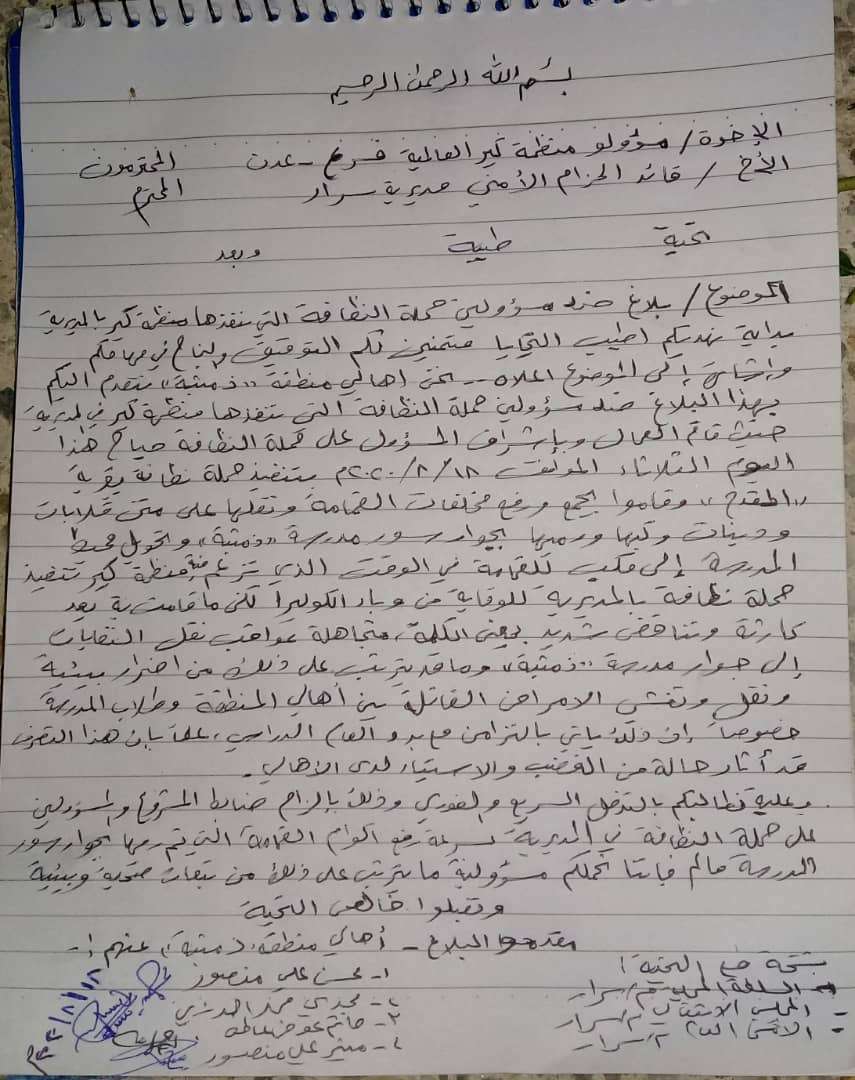 بسم الله الرحمن الرحيم
الإخوة / مسؤولو منظمة كير العالمية فرع - عدن المحترمون
الأخ / قائد الحزام الأمني مديرية سرار المحترم
تحية طيبة وبعد
الموضوع / بلاغ ضد مسؤولين حملة النظافة التي تنفذها منظمة كير بالمديرية
بداية نهديكم اطيب التحايا متمنين لكم التوفيق والنجاح في مهامكم
وإشارة إلى الموضوع اعلاه -- نحن اهالي منطقة "ذمثبة" نتقدم اليكم
بهذا البلاغ ضد مسؤولين حملة النظافة التي تنفذها منظمة كير في المديرية
حيث قام العمال وبإشراف المسؤول على حملة النظافة صباح هذا
اليوم الثلاثاء الموافق ٢٠٢٠/٨/١٨م بتنفيذ حملة نظافة بقرية
"المقدح" وقاموا بجمع ورفع مخلفات القمامة ونقلها على متن قلابات
ودينات وكبها ورميها بجوار سور مدرسة "ذمثبة" وتحول محيط
المدرسة إلى مكب للقمامة في الوقت الذي تزعم فيه منظمة كير تنفيذ
حملة نظافة بالمديرية للوقاية من وباء الكوليرا لكن ما قامت به يعد
كارثة وتناقض شديد بمعنى الكلمة، متجاهلة عواقب نقل النفايات
إلى جوار مدرسة "ذمثبة" وما قد يترتب على ذلك من اضرار بيئية
ونقل وتفشي الامراض القاتلة بين أهالي المنطقة وطلاب المدرسة
خصوصاً إن ذلك ياتي بالتزامن مع بدو العام الدراسي، علماً بان هذا التصرف
قد أثار حالة من الغضب والاستياء لدى الأهالي.
وعليه نطالبكم بالتدخل السريع والفوري وذلك بإلزام ضابط المشروع والمسؤولين
على حملة النظافة في المديرية بسرعة رفع اكوام القمامة التي تم رميها بجوار سور
المدرسة مالم فإننا نحملكم مسؤولية ما يترتب على ذلك من تبعات صحية وبيئية
وتقبلوا خالص التحية
مقدموا البلاغ - أهالي منطقة "ذمثبة" عنهم :-
١- محسن علي منصور
٢- مجدي محمد احمد
٣- حاتم عوض
٤- منير علي منصور
٢٠٢٠/٨/١٨
نسخة مع التحية :
- السلطة المحلية م/سرار
- المجلس الانتقالي م/سرار
- الأمن العام م/سرار